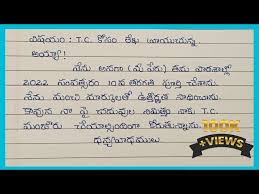 విషయం : T.C. కోసం లేఖ వ్రాయుచున్న.
అయ్యా!
నేను అనగా (మీ పేరు) తమ పాఠశాలలో
2022 సంవత్సరం 10వ తరగతి పూర్తి చేశాను.
నేను మంచి మార్కులతో ఉత్తీర్ణత సాధించాను.
కావున నా పై చదువుల నిమిత్తం నాకు T.C.
మంజూరు చేయాల్సిందిగా కోరుతున్నాను.
ధన్యవాదములు
100K
+VIEWS